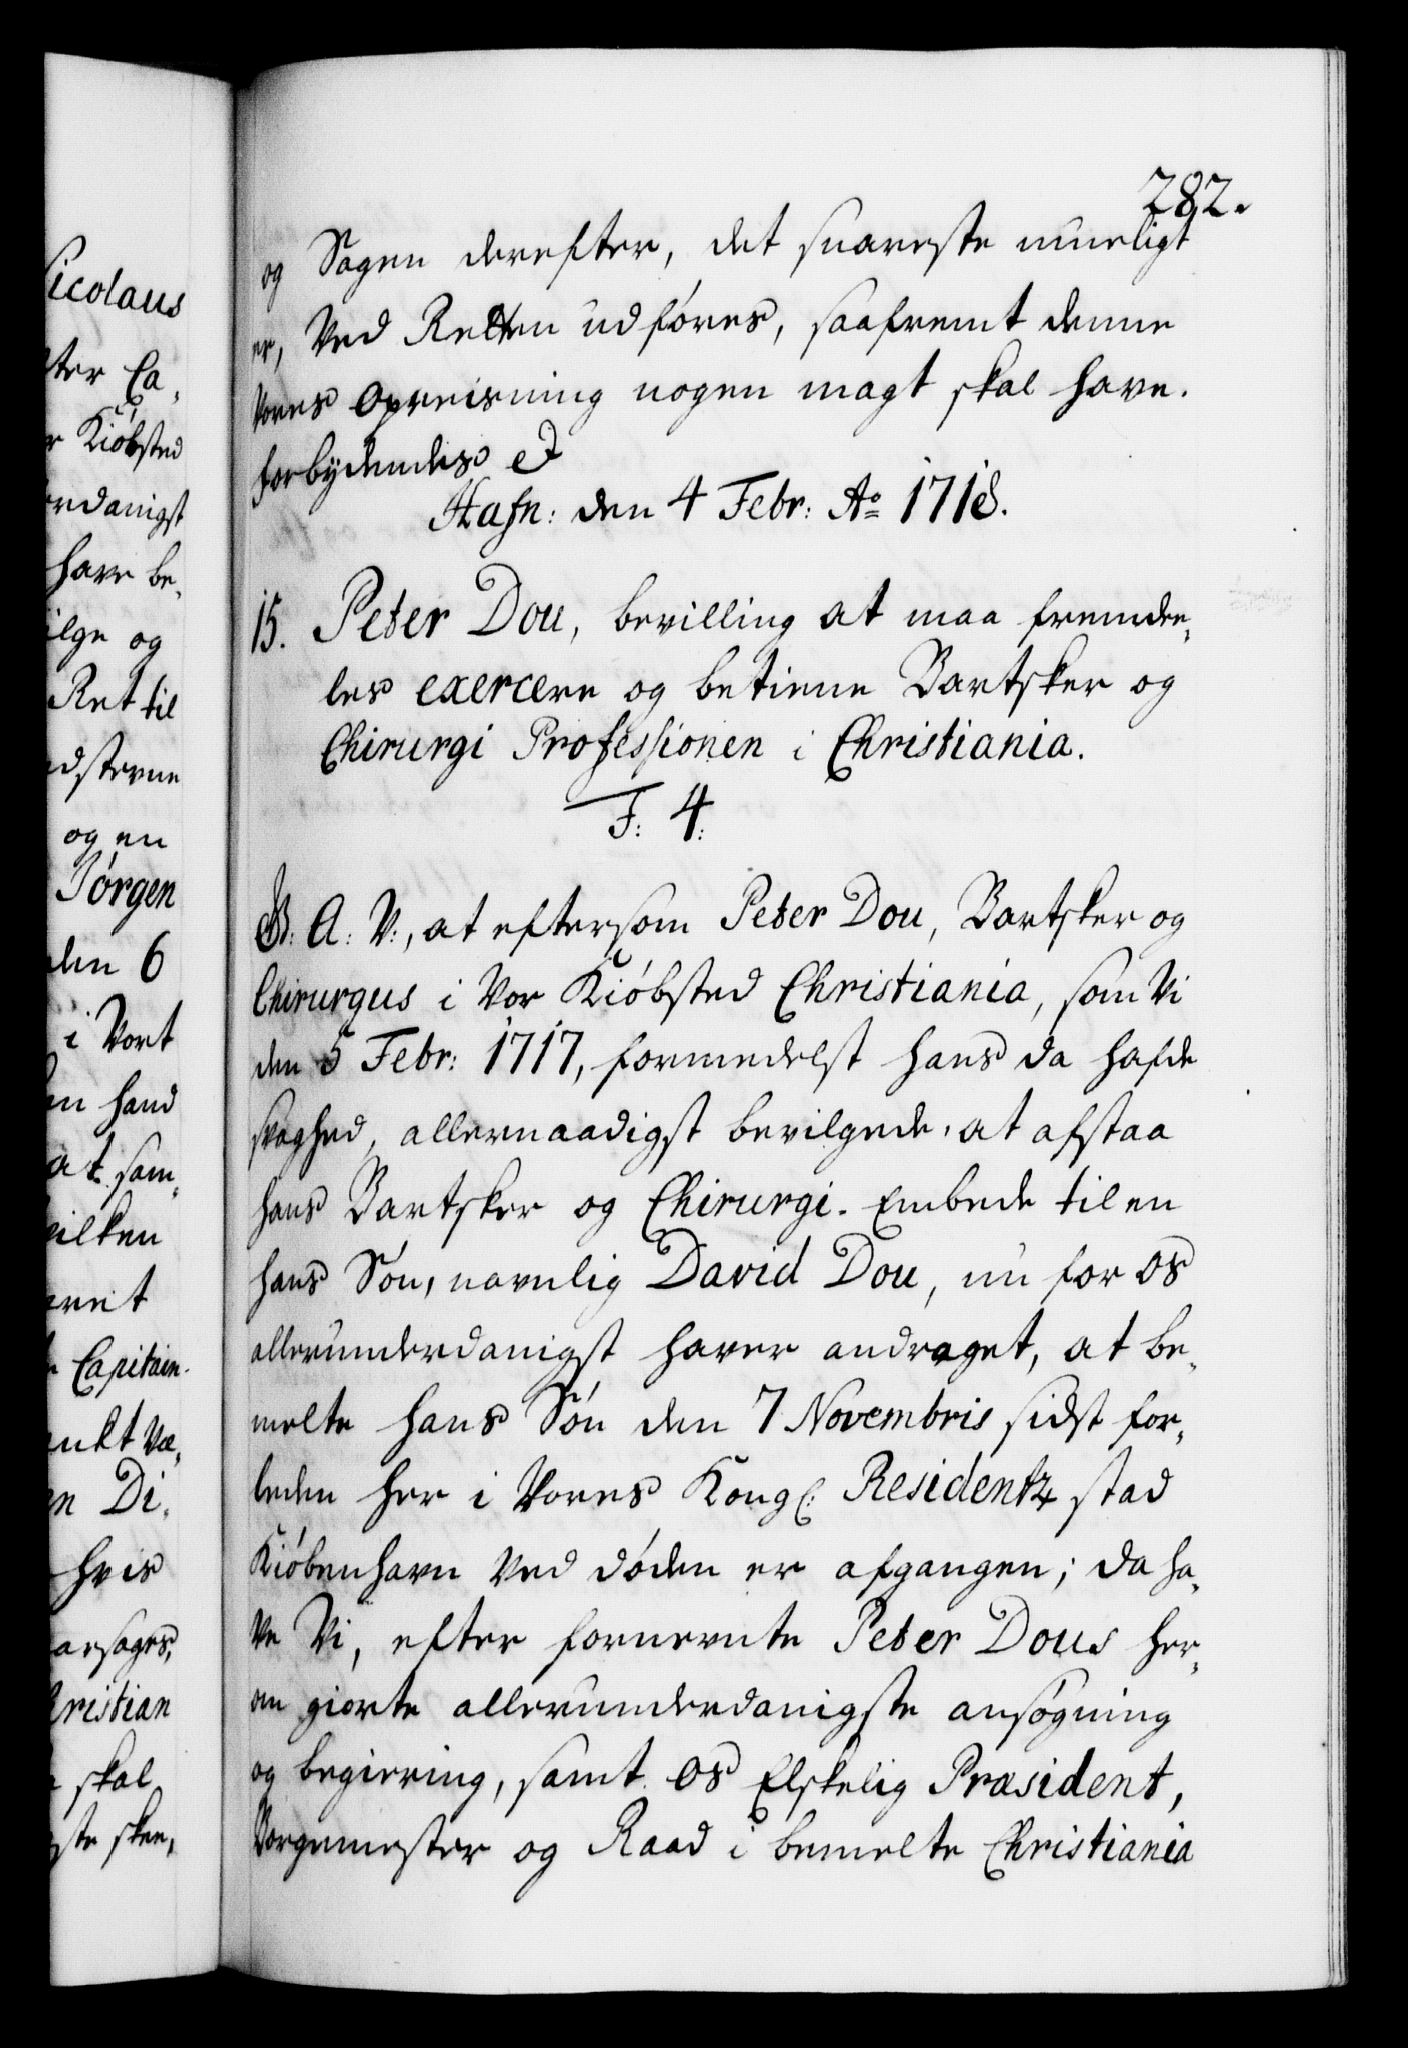 282.
og Sagen derefter, det snareste mueligt
er, Ved Retten udføres, saafremt denne
Vores Opreisning nogen magt skal have.
Forbydendes &
Hafn: den 4 Febr: Aº 1718.
15. Peter Dou, bevilling at maa fremde-
les exercere og betiene Bartsker og
Chirurgi Professionen i Christiania.
F: 4.
G: A: V:, at eftersom Peter Dou, Bartsker og
Chirurgus i Vor Kiøbsted Christiania, som Vi
den 5 Febr: 1717, formedelst hans da hafde
svaghed, allernaadigst bevilgede, at afstaa
hans Bartsker og Chirurgi-Embede til en
hans Søn, navnlig David Dou, nu for os
allerunderdanigst haver andraget, at be-
melte hans Søn den 7 Novembris sidst for-
leden her i Vores Kongl: Residentz stad
Kiøbenhavn Ved døden er afgangen; da ha-
Ve Vi, efter fornevnte Peter Dous her-
om giorte allerunderdanigste ansøgning
og begiering, samt os Elskelig Præsident,
Borgemester og Raad i bemelte Christiania
icolaus
ter Ca-
r Kiøbsted
rdanigst
have be-
ilge og
Ret til
dsterne
og en
Jørgen
den 6
i Vort
en hand
at sam-
vilken
eret
Capitain-
en Di-
hvis
arsages,
hristian
skal
ste skee,